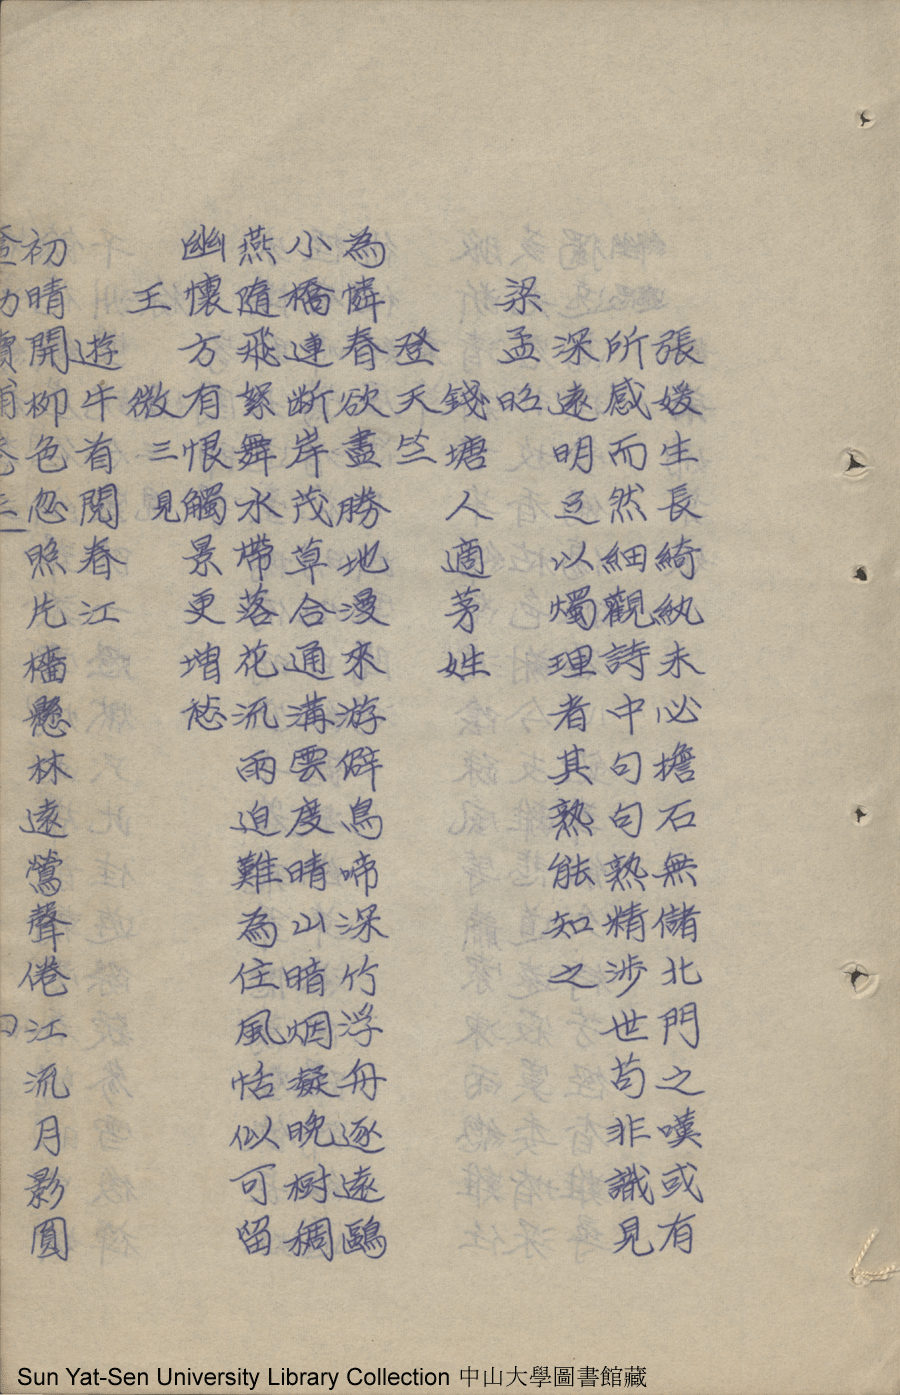 張媛生長綺紈未必擔石無儲北門之嘆或有
所感而然細觀詩中句句熟精涉世苟非識見
深遠明足以燭理者其熟能知之
梁孟昭
錢塘人適茅姓
登天竺
為憐春欲盡勝地漫來游僻鳥啼深竹浮舟逐遠鷗
小橋連断岸茂草合通溝雲度晴山暗烟凝晚樹稠
燕隨飛絮舞水帶落花流雨迫難為住風恬似可留
幽懷方有恨觸景更増愁
王微三見
遊牛有閱春江
初晴開柳色忽照片檣懸林遠鶯聲倦江流月影圓
Sun Yat-Sen University Library Collection 中山大學圖書館藏